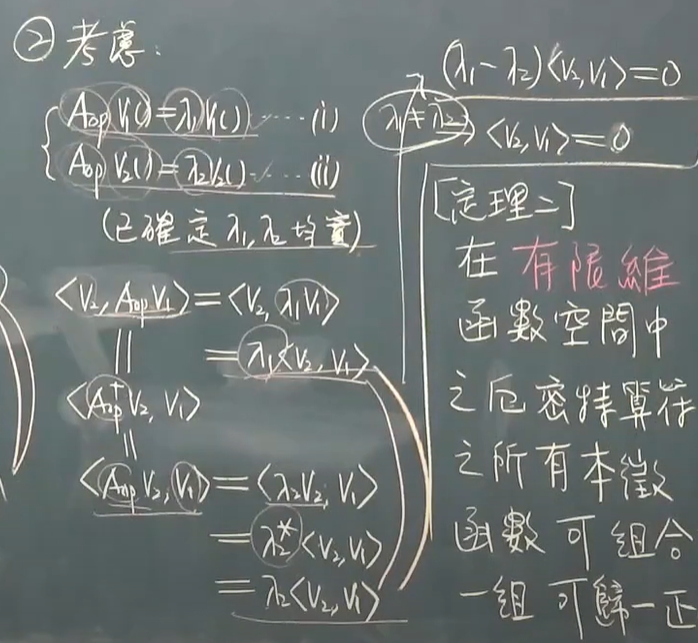 ②考慮:
A_op V₁() = λ₁V₁() ‥‥‥ (i)
A_op V₂() = λ₂V₂() ‥‥‥ (ii)
(已確定λ₁, λ₂均實)
<V₂, A_op V₁> = <V₂, λ₁V₁>
|| = λ₁<V₂, V₁>
<A_op† V₂, V₁>
||
<A_op V₂, V₁> = <λ₂V₂, V₁>
= λ₂*<V₂, V₁>
= λ₂<V₂, V₁>
(λ₁-λ₂)<V₂, V₁> = 0
λ₁≠λ₂ → <V₂, V₁> = 0
[定理二]
在有限維
函數空間中
之厄密特算符
之所有本徵
函數可組合
一組可歸一正